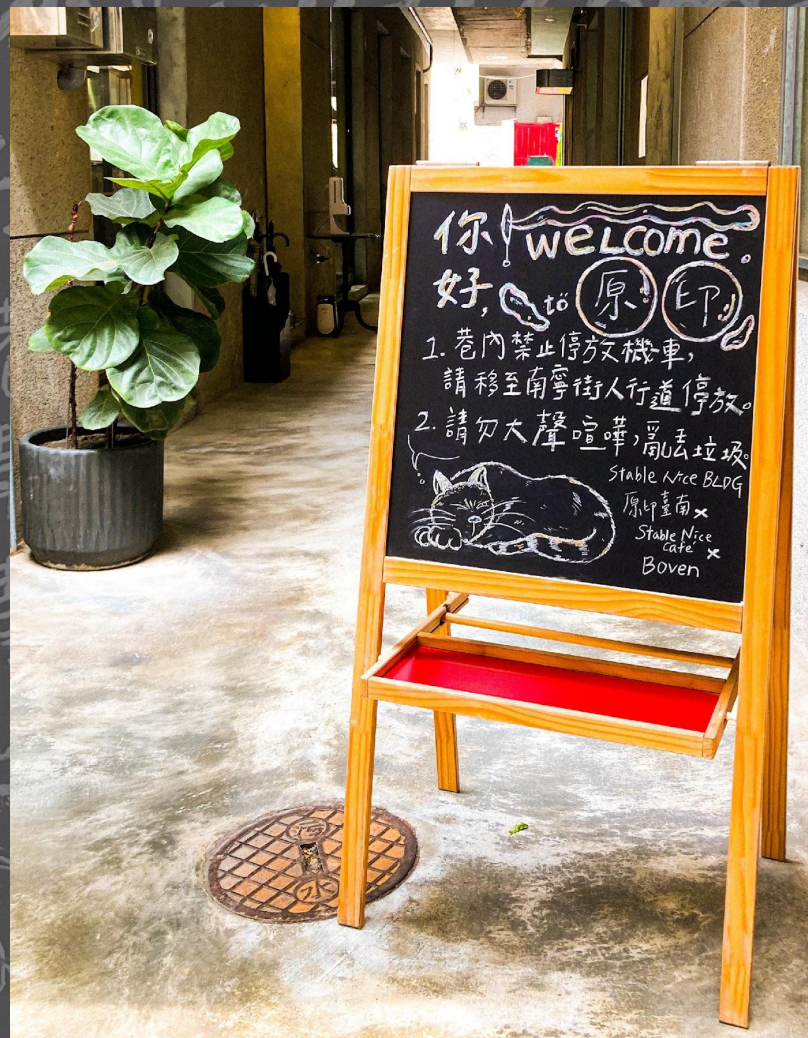 你 welcome.
好, to 原 印
1. 巷內禁止停放機車,
請移至南寧街人行道停放。
2. 請勿大聲喧嘩,亂丟垃圾。
Stable Nice BLDG
原印臺南×
Stable Nice
Café ×
Boven
污
水